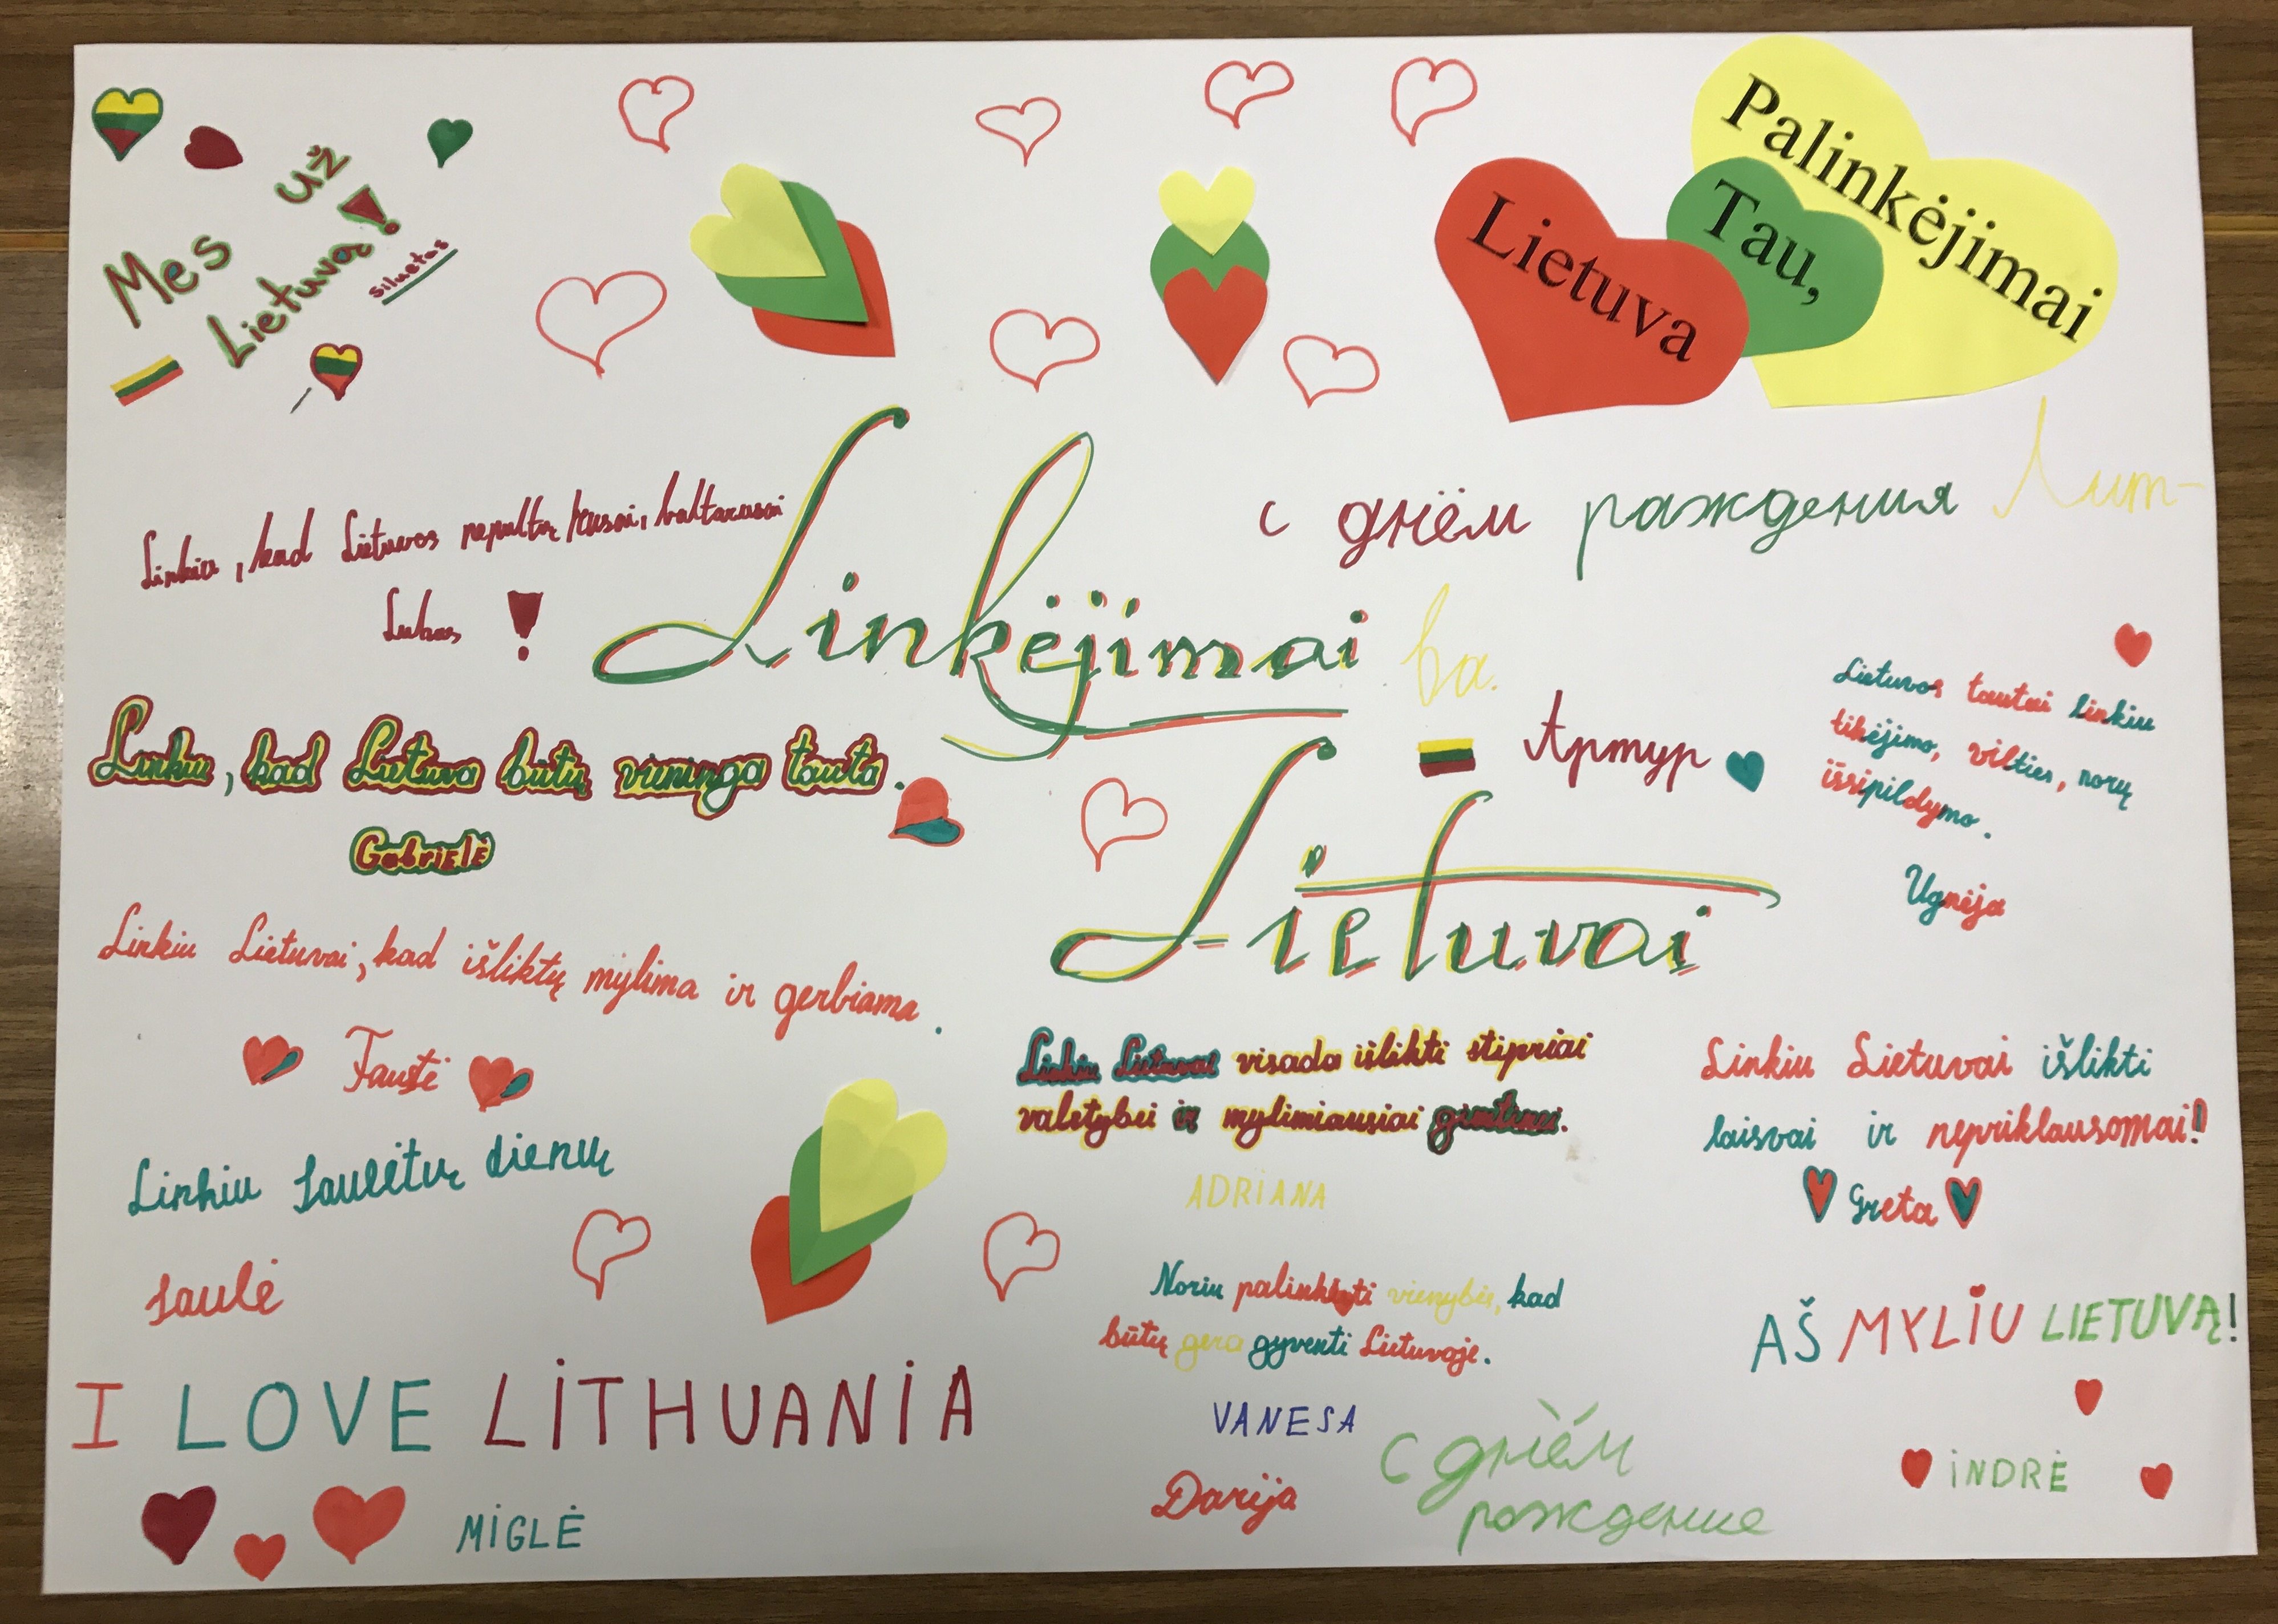 Mes už
Lietuvą!
siluetas
Palinkėjimai
Tau,
Lietuva
Linkiu, kad Lietuvos nepultų Rusai, baltarusai
Lukas !
Linkėjimai
Lietuvai
с днём раждения Лит-
ва.
Артур
Lietuvos tautai linkiu
tikėjimo, vilties, norų
išsipildymo.
Ugnėja
Linkiu, kad Lietuva būtų vieninga tauta.
Gabrielė
Linkiu Lietuvai, kad išliktų mylima ir gerbiama.
Faustė
Linkiu Lietuvai visada išlikti stipriai
valstybei ir mylimiausiai gimtinei.
ADRIANA
Linkiu Lietuvai išlikti
laisvai ir nepriklausomai!
Greta
Linkiu saulėtų dienų
saulė
Noriu palinkėti vienybės, kad
būtų gera gyventi Lietuvoje.
VANESA
AŠ MYLIU LIETUVĄ!
INDRĖ
I LOVE LITHUANIA
MIGLĖ
Darija
с днём
рождение